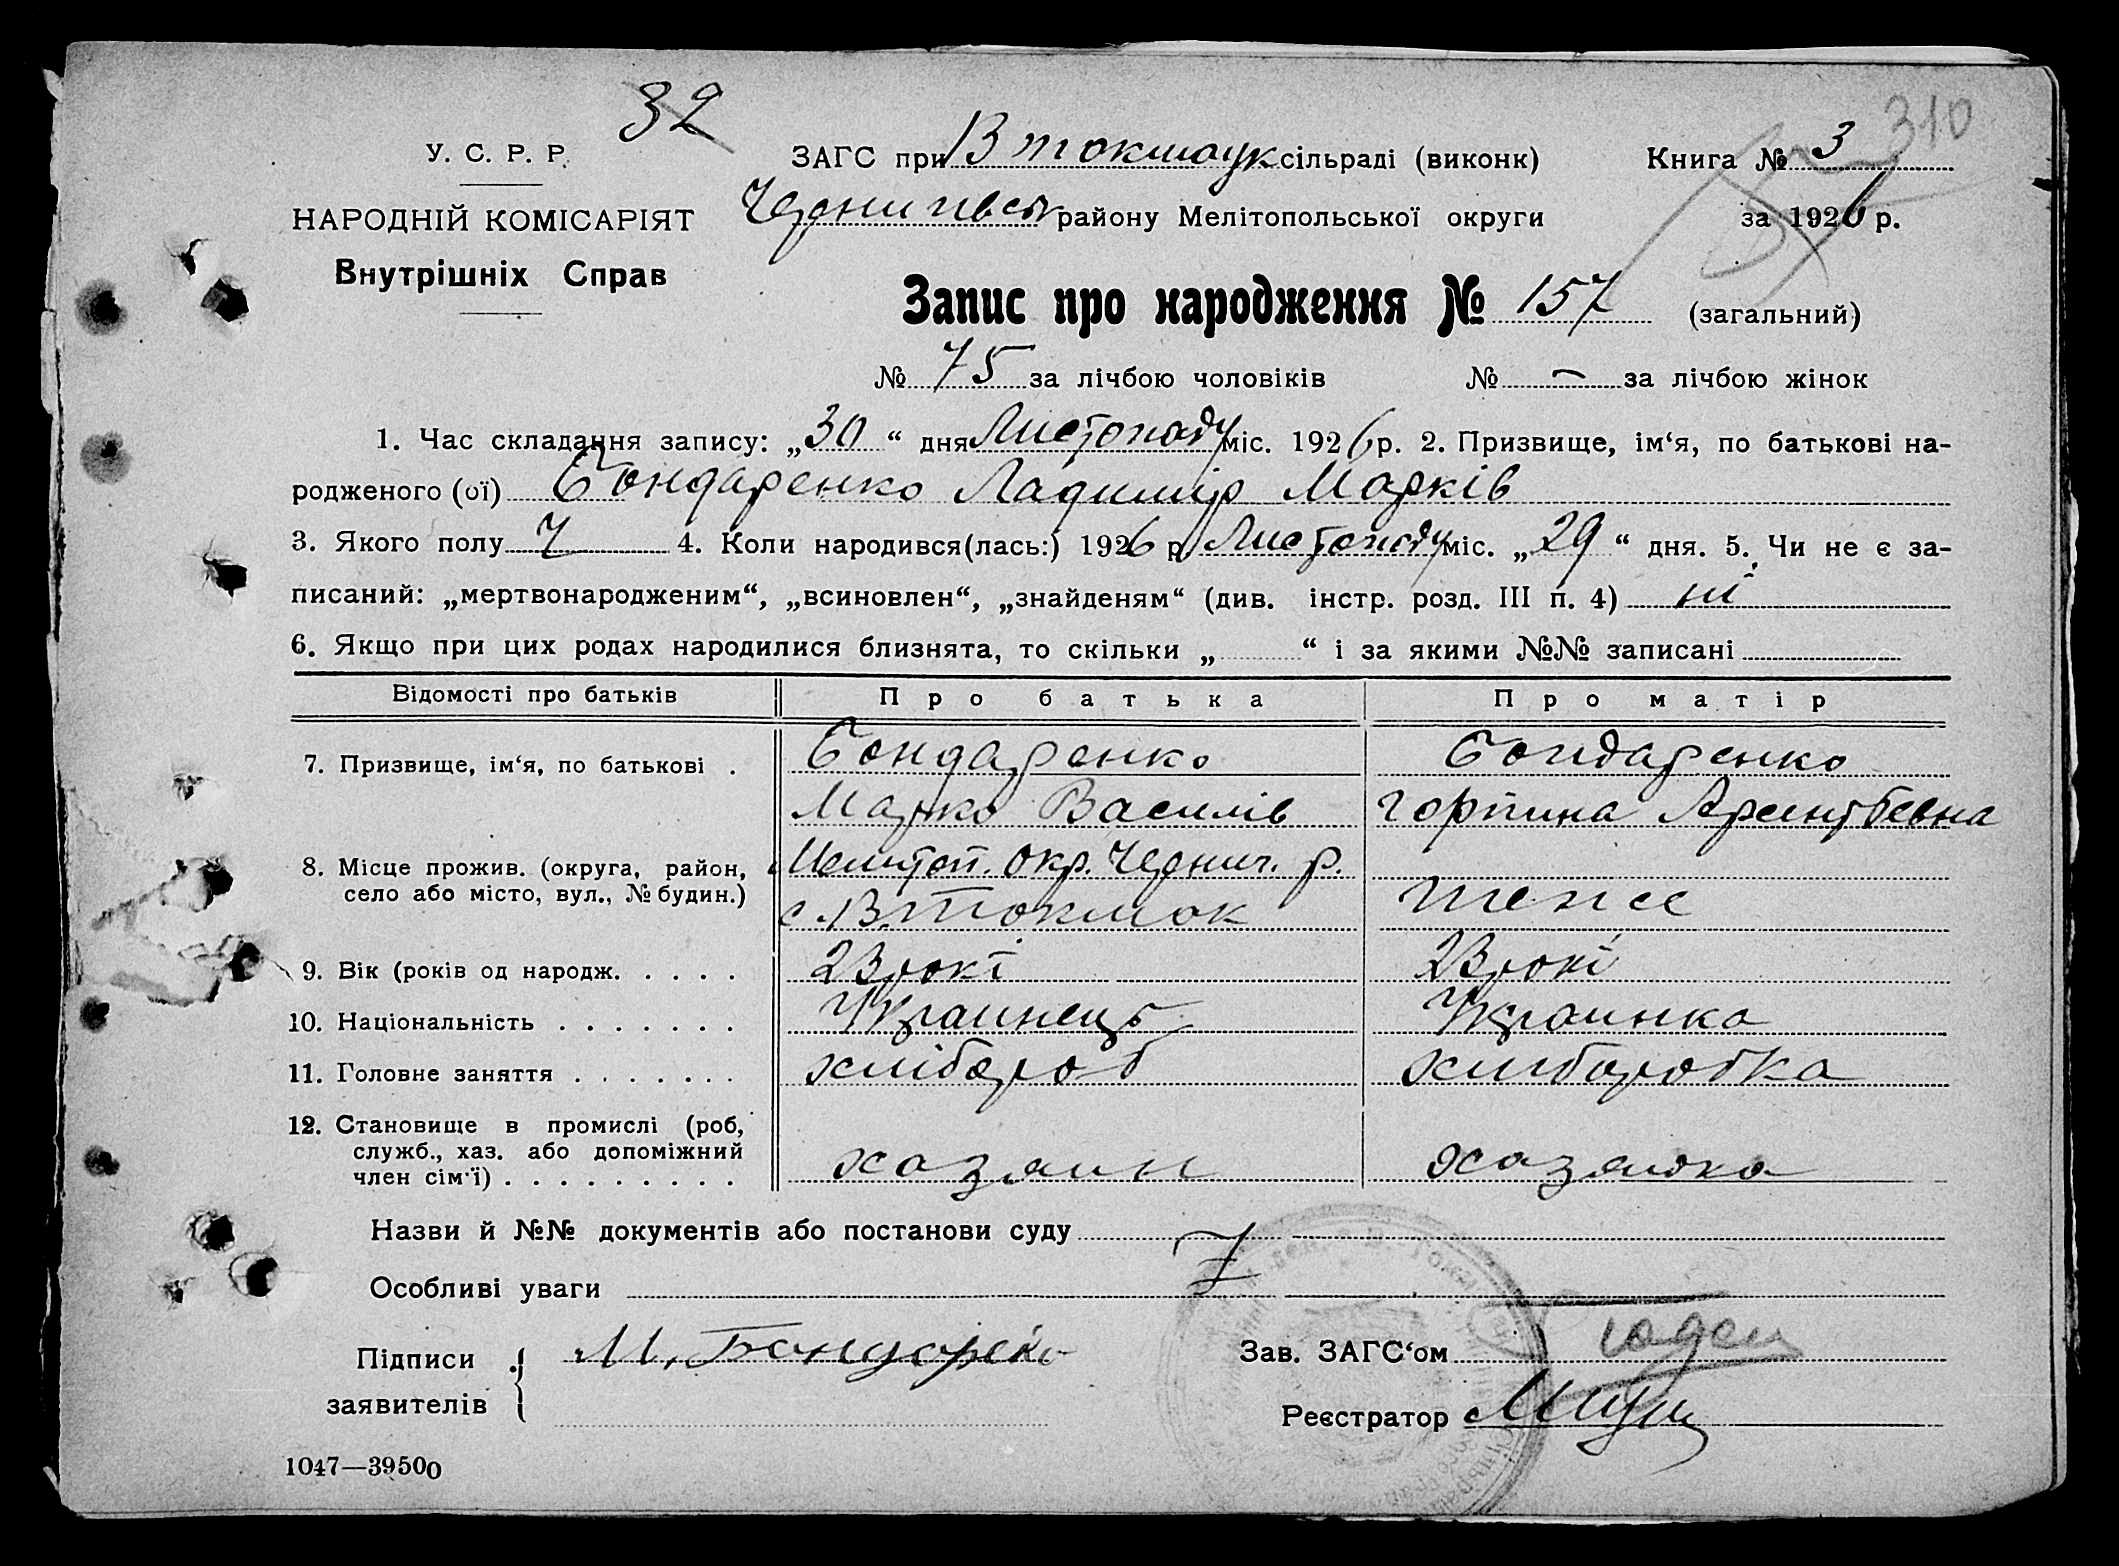 32
310
У. С. Р. Р.
ЗАГС при В токмаук сільраді (виконк)
Книга № 3
НАРОДНІЙ КОМІСАРІЯТ
Чернигівськ району Мелітопольської округи
за 1926 р.
Внутрішніх Справ
Запис про народження № 157 (загальний)
№ 75 за лічбою чоловіків № — за лічбою жінок
1. Час складання запису: „30“ дня Листопаду міс. 1926 р. 2. Призвище, ім‘я, по батькові на-
родженого (ої) Бондаренко Ладимир Марків
3. Якого полу Ч 4. Коли народився(лась:) 1926 р. Листопаду міс. „29“ дня. 5. Чи не є за-
писаний: „мертвонародженим“, „всиновлен“, „знайденям“ (див. інстр. розд. III п. 4) ні
6. Якщо при цих родах народилися близнята, то скільки „ “ і за якими №№ записані
Відомості про батьків Про батька Про матір
7. Призвище, ім‘я, по батькові . Бондаренко Бондаренко
Марко Василів Горпина
8. Місце прожив. (округа, район, Мелітоп. Окр. Черниг. р.
село або місто, вул., № будин.) с. В. Токмак теж
9. Вік (років од народж. . . . . 23 рокі 23 рокі
10. Національність . . . . . . . Украинець Украинка
11. Головне заняття . . . . . . . хлібороб хлиборобка
12. Становище в промислі (роб,
служб., хаз. або допоміжний
член сім‘ї) . . . . . . . . . хазяин хазяйка
Назви й №№ документів або постанови суду
Особливі уваги
Підписи М. Бондаренко Зав. ЗАГС‘ом
заявителів Реєстратор
1047—39500